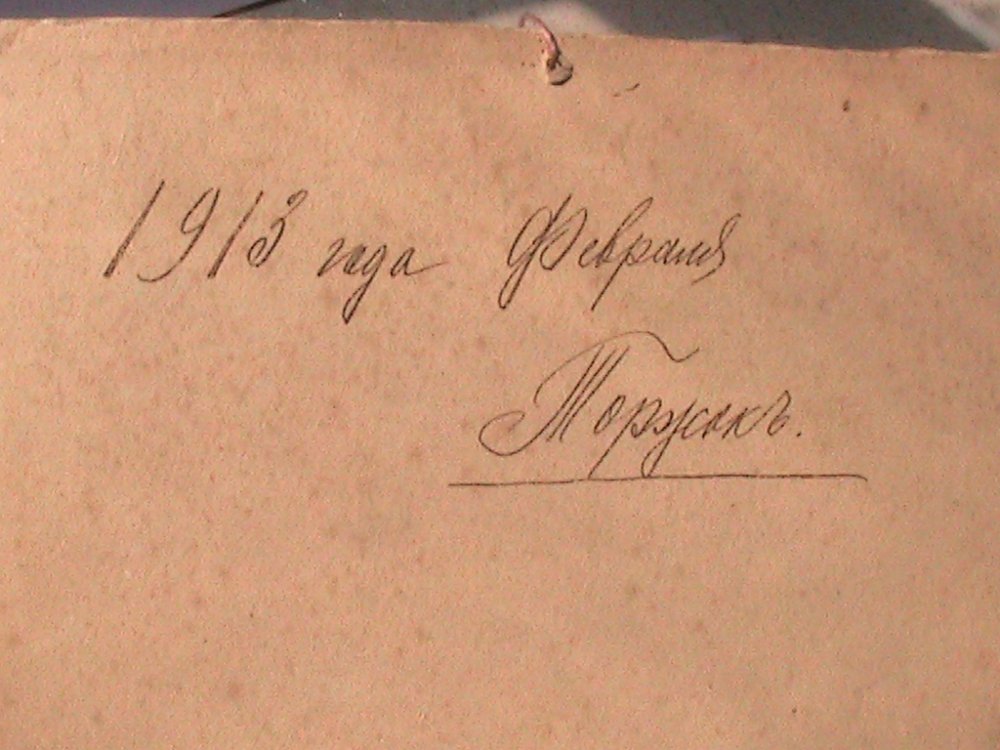 1913 года Февраля
Торжокъ.